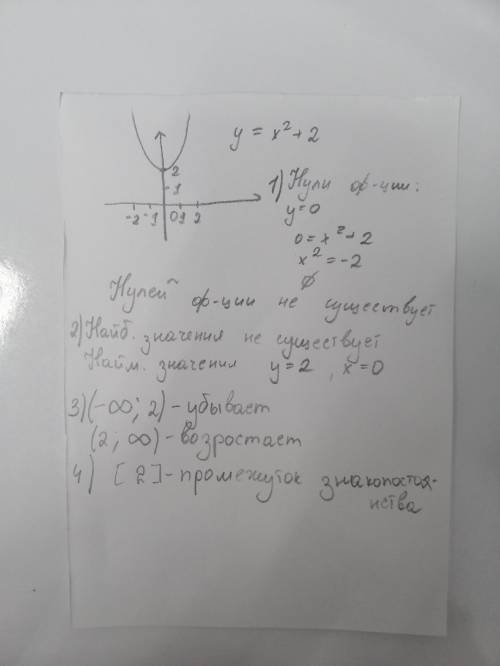 y = x² + 2
2
1
-2 -1 0 1 2
1) Нули ф-ции:
y=0
0 = x² + 2
x² = -2
∅
Нулей ф-ции не существует
2) Найб. значения не существует
Найм. значения y = 2 , x = 0
3) (-∞; 2) - убывает
(2; ∞) - возростает
4) [ 2 ] - промежуток знакопостоя-
нства